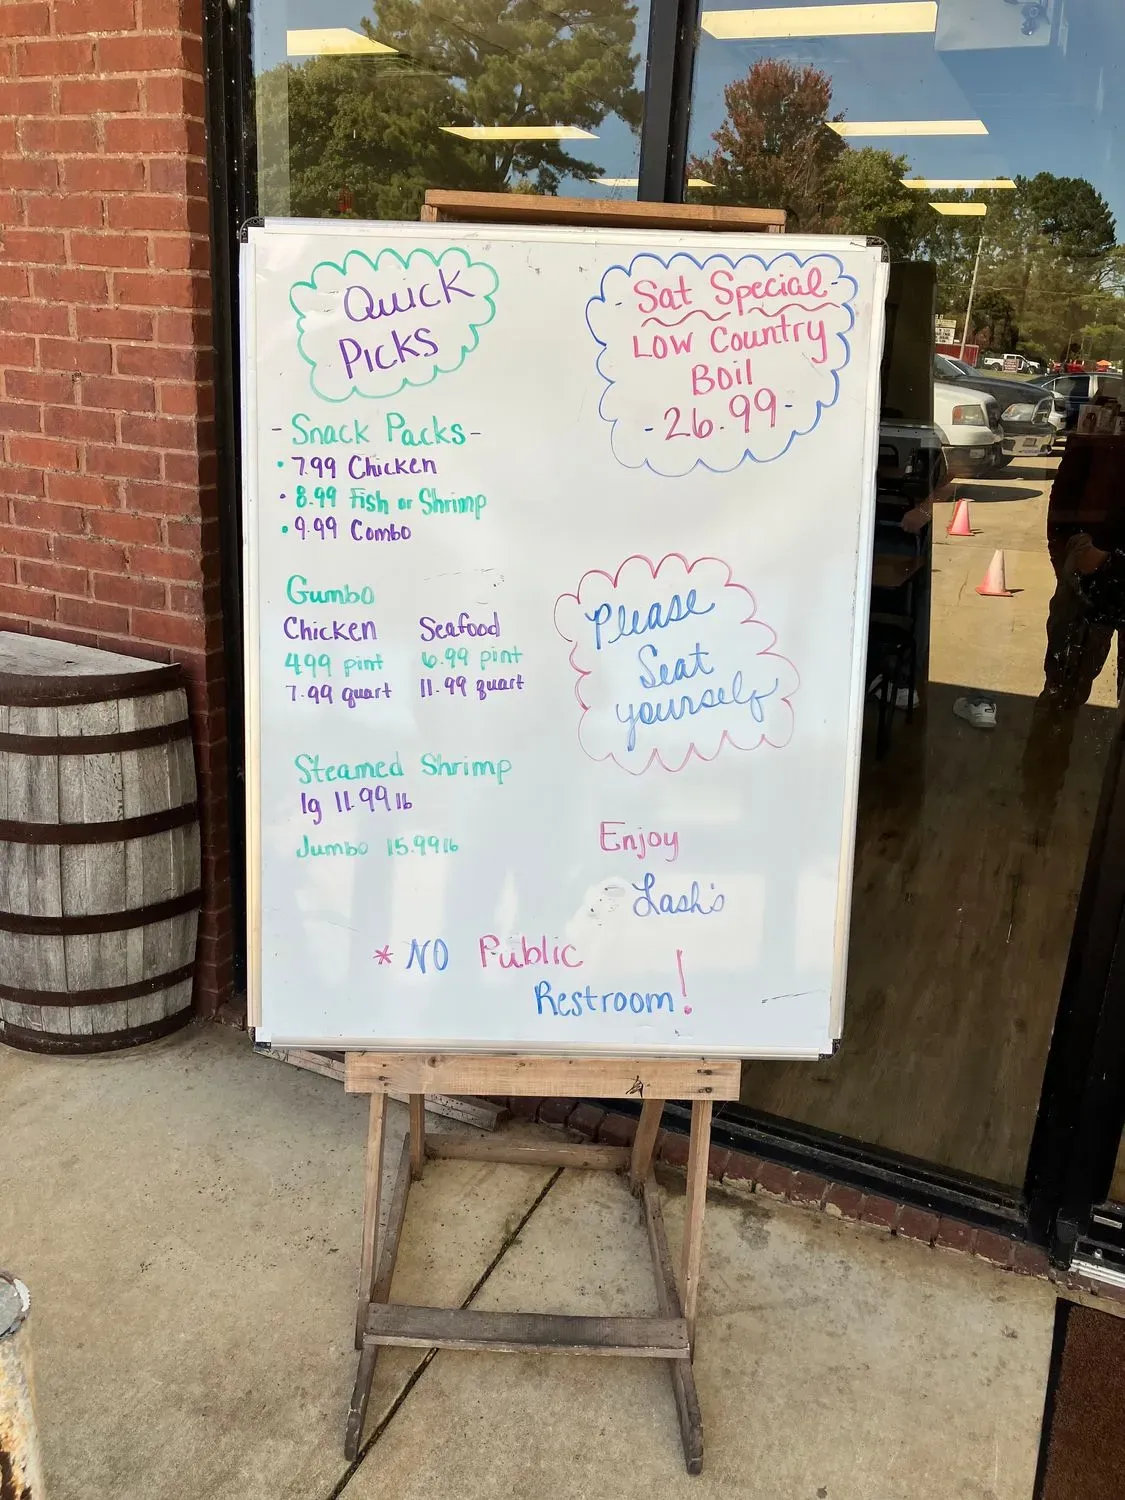 Quick
Picks
- Snack Packs -
• 7.99 Chicken
• 8.99 Fish or Shrimp
• 9.99 Combo
Gumbo
Chicken Seafood
499 pint 6.99 pint
7.99 quart 11.99 quart
Steamed Shrimp
lg 11.99 lb
Jumbo 15.99 lb
- Sat Special -
Low Country
Boil
- 26.99 -
Please
Seat
yourself
Enjoy
Lash's
* NO Public
Restroom!